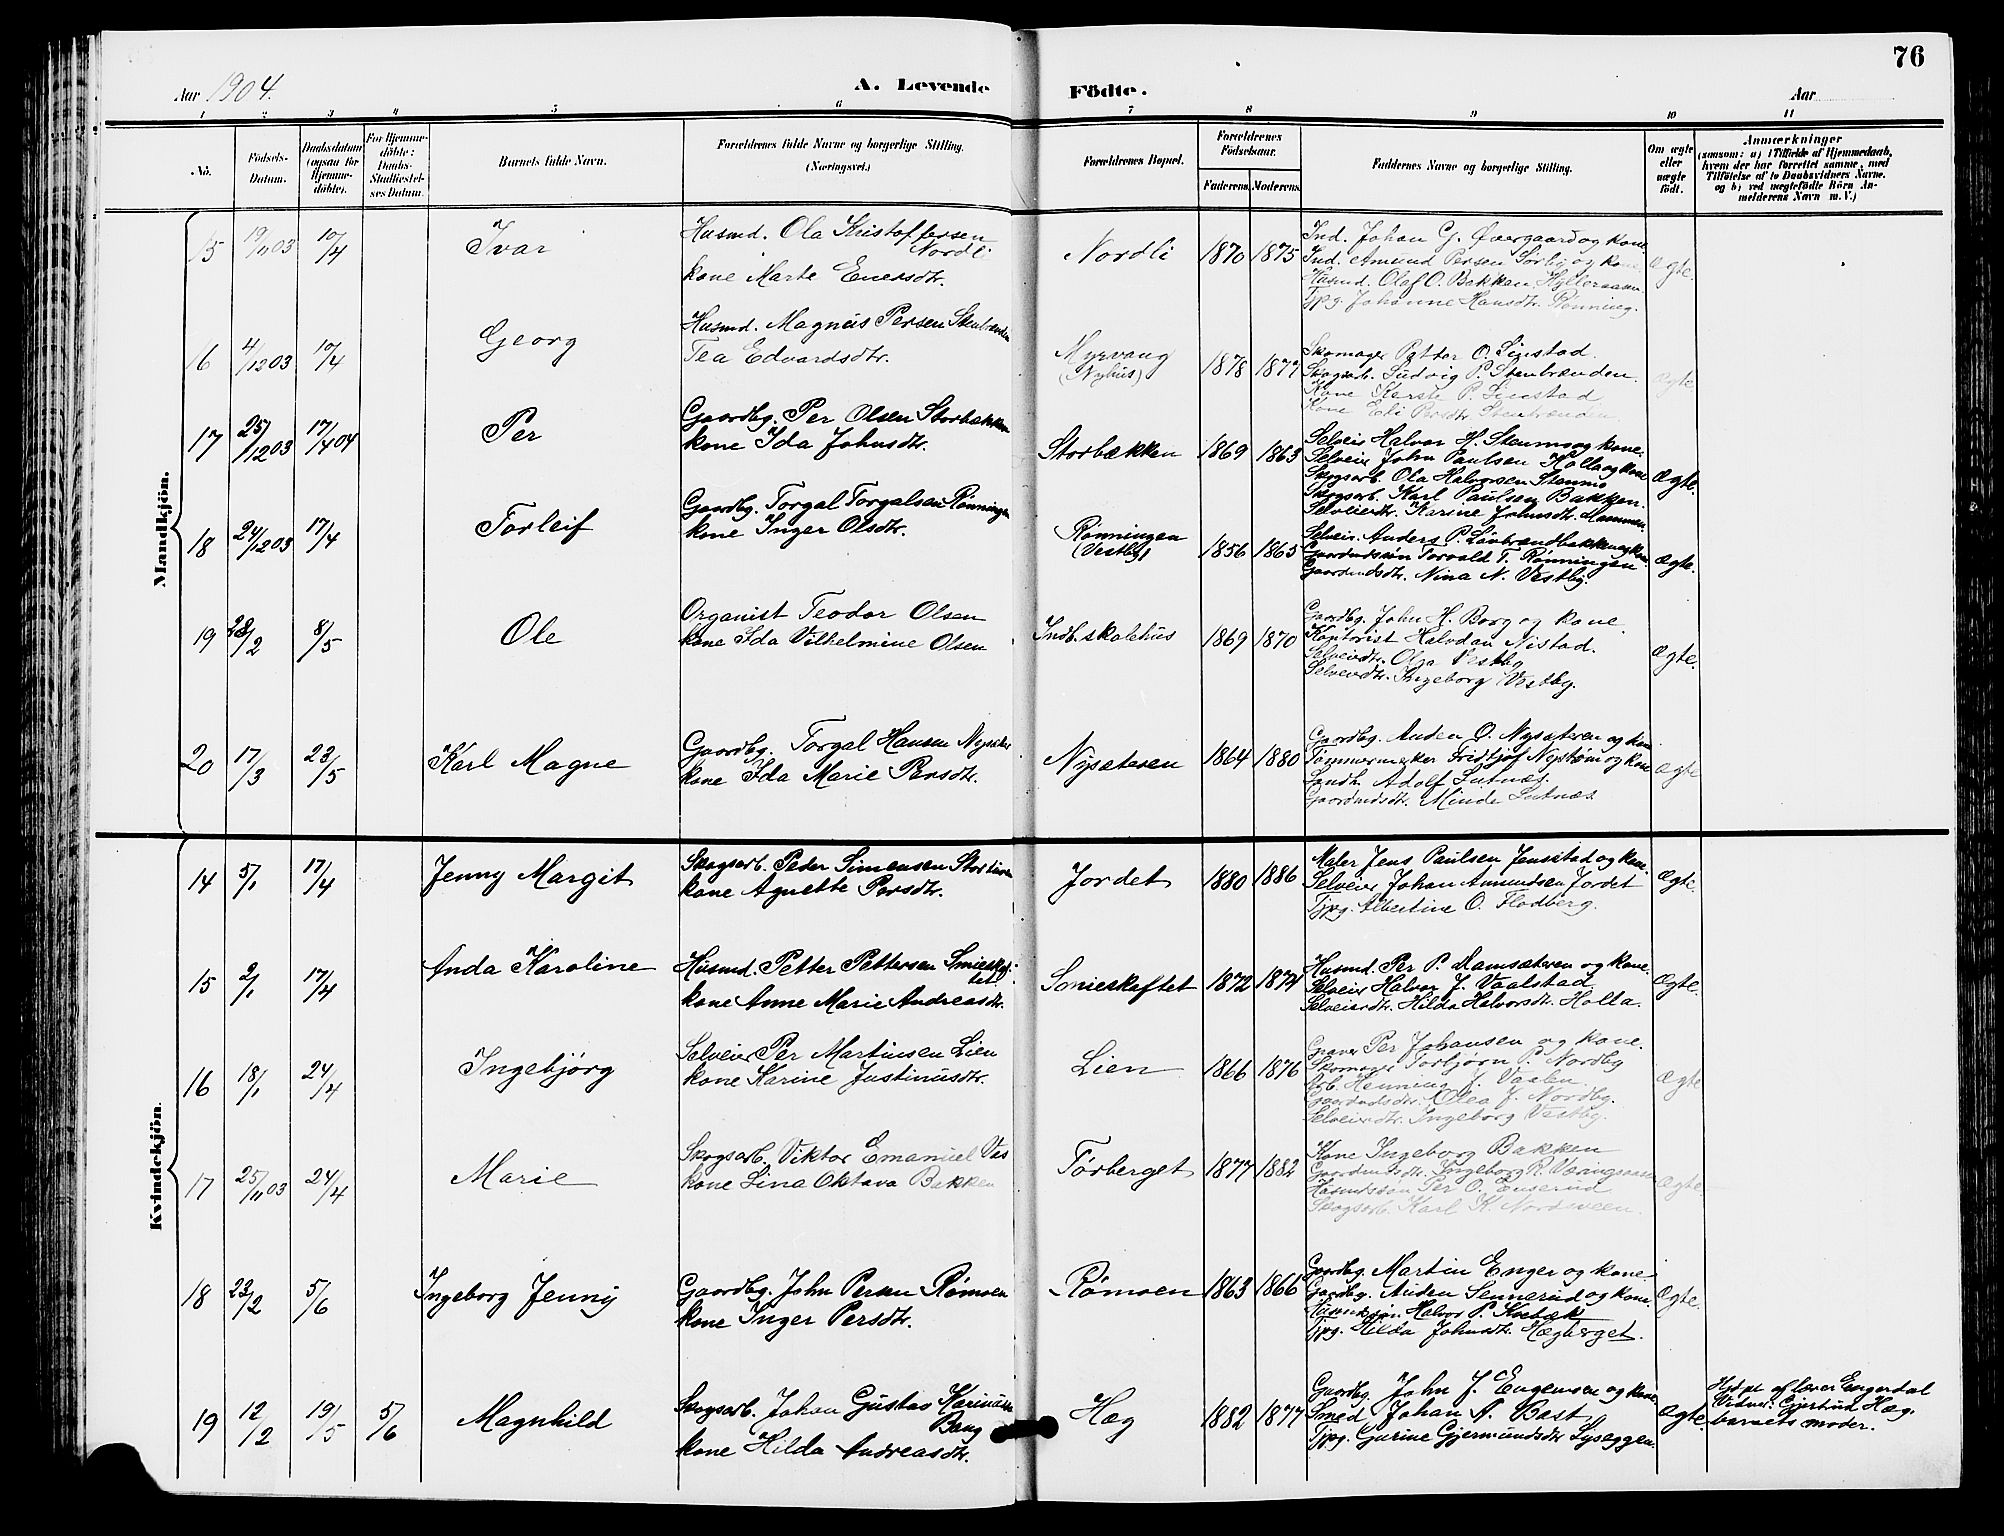 76
Aar 1904.
A. Levende Födte.
Aar
1 2 3 4 5 6 7 8 9 10 11
No.
Födsels-Datum.
Daabsdatum (ogsaa for Hjemme-döbte).
For Hjemme-döbte: Daabs-Stadfæstel-ses Datum.
Barnets fulde Navn.
Forældrenes fulde Navne og borgerlige Stilling. (Næringsvei.)
Forældrenes Bopæl.
Forældrenes Födselsaar.
Faderens. Moderens.
Faddernes Navne og borgerlige Stilling.
Om ægte eller uægte födt.
Anmærkninger
(saasom: a) i Tilfælde af Hjemmedaab,
hvem der har forrettet samme, med
Tilföielse af to Daabsvidners Navne.
og b) ved uægtefödte Börn An-
melderens Navn m. V.)
Mandkjön.
15 19/11 03 10/4 Ivar
Husmd. Ola Kristoffersen
Nordli
kone Marte Enersdtr.
Nordli 1870 1875
Ind. Johan G. Øvergaard og kone
Ind. Amund Persen Sørli og kone
Husmd. Olaf O. Bakken Hylleraasen
Tjpg. Johanne Hansdtr. Rønning.
Ægte.
16 4/12 03 10/4 Georg
Husmd. Magnus Persen Stenbrænden
Tea Edvardsdtr.
Myrvang
(Nyhus)
1878 1877
Skomager Petter O. Linstad
Skogsarb. Ludvig P. Stenbrænden.
Kone Kerste P. Linstad
Kone Eli Persdtr. Stenbrænden
Ægte
17 25/12 03 17/4 04 Per
Gaardbg. Per Olsen Storbækken
kone Ida Johnsdtr.
Storbækken 1869 1863
Selveier Halvor H. Stenmo og kone.
Selveier John Paulsen Holla og kone
Skogsarb. Ola Halvorsen Stenmo
Skogsarb. Karl Paulsen Bakken.
Selveierdtr. Karine Johnsdtr.
Ægte.
18 24/12 03 17/4 Torleif
Gaardbg. Torgal Torgalsen Rønningen
kone Inger Olsdtr.
Rønningen
(Vestby)
1856 1865
Selveier. Anders P. Løvbrændbakken og kone
Gaardmdssøn Torvald T. Rønningen
Gaardmdsdtr. Nina N. Vestby.
Ægte.
19 28/2 8/5 Ole
Organist Teodor Olsen
kone Ida Vilhelmine Olsen
Indb. skolehus 1869 1870
Gaardbg. John H. Borg og kone.
Kontorist Halvdan Nistad.
Selveierdtr. Olga Vestby
Selveierdtr. Ingeborg Vestby.
Ægte.
20 17/3 23/5 Karl Magne
Gaardbg. Torgal Hansen Nysæter
kone Ida Marie Persdtr.
Nysæteren 1864 1880
Gaardbg. Auden O. Nysæteren og kone
Tømmermerker Fridtjof Nystrøm og kone
Landh. Adolf Lutnæs.
Gaardmdsdtr. Minda Lutnæs
Ægte
Kvindekjön.
14 5/1 17/4 Jenny Margit
Skogsarb. Peder Simensen
kone Agnette Persdtr.
Jordet 1880 1886
Maler Jens Paulsen Jensstad og kone.
Selveier Johan Amundsen Jordet
Tjpg. Albertine O. Flodberg.
Ægte.
15 2/1 17/4 Anda Karoline
Husmd. Petter Pettersen Smieskaf-
tet
kone Anne Marie Andreasdtr.
Smieskaftet 1872 1874
Husmd. Per P. Damsæteren og kone.
Selveier Halvor J. Vaalstad
Selveierdtr. Hilda Halvorsdtr. Holla.
Ægte.
16 18/1 24/4 Ingebjørg
Selveier Per Martinsen Lien
kone Karine Justinusdtr.
Lien 1866 1876
Graver Per Johansen og kone.
Skomager Torbjørn P. Nordby
Arb. Henning J. Vaalen.
Gaardmdsdtr. Olea J. Nordby.
Selveierdtr. Ingeborg Vestby.
Ægte
17 25/11 03 24/4 Marie
Skogsarb. Viktor Emanuel
kone Lina Oktava Bakken
Tørberget 1877 1882
Kone Ingeborg Bakken
Gaardmdsdtr. Ingeborg R.
Husmdssøn Per O. Enserud
Skogsarb. Karl K. Nordsveen.
Ægte.
18 23/2 5/6 Ingeborg Jenny
Gaardbg. John Persen Rømoen
kone Inger Persdtr.
Rømoen 1863 1866
Gaardbg. Martin Enger og kone
Gaardbg. Auden Sennerud og kone.
Husmdssøn Halvor P. Kvebæk
Tjpg. Hilda Johnsdtr. Hægberget.
Ægte.
19 12/2 19/5 5/6 Magnhild
Skogsarb. Johan Gustav
Bang
kone Hilda Andreasdtr.
Hæg 1882 1877
Gaardbg. John J. Engensen og kone.
Smed Johan A. Bast
Tjpg. Gurine Gjermundsdtr Lyseggen.
Ægte.
Hjdpt. af lærer Engerdal
Vidne: Gjertrud Hæg.
barnets moder.